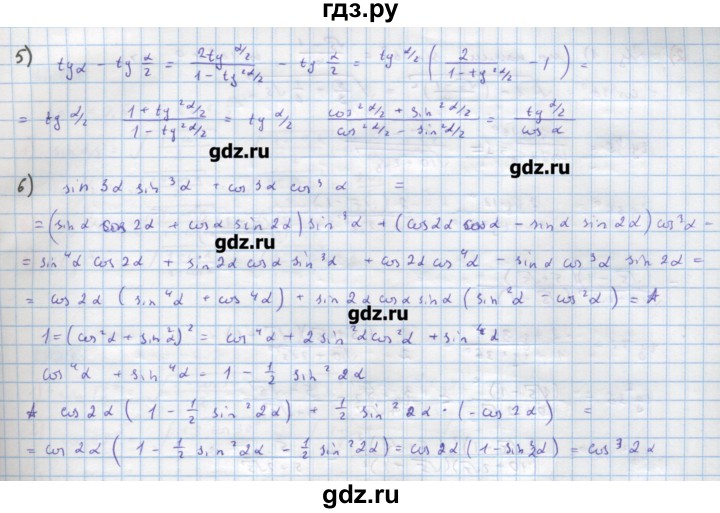 гдз.ру
5) tgα - tg α/2 = 2tg α/2 / 1 - tg² α/2 - tg α/2 = tg α/2 ( 2 / 1 - tg² α/2 - 1 ) =
= tg α/2 1 + tg² α/2 / 1 - tg² α/2 = tg α/2 cos² α/2 + sin² α/2 / cos² α/2 - sin² α/2 = tg α/2 / cos α
gdz.ru
gdz.ru
6) sin 3α sin³α + cos 3α cos³α =
gdz.ru
= (sinα cos 2α + cosα sin 2α) sin³α + (cos2α cosα - sinα sin 2α) cos³α -
gdz.ru
= sin⁴α cos 2α + sin 2α cosα sin³α + cos 2α cos⁴α - sinα cos³α sin 2α =
= cos 2α (sin⁴α + cos 4α) + sin 2α cosα sinα (sin²α - cos²α) = A
gdz.ru
1 = (cos²α + sin²α)² = cos⁴α + 2 sin²α cos²α + sin⁴α
cos⁴α + sin⁴α = 1 - 1/2 sin² 2α
A cos 2α ( 1 - 1/2 sin² 2α) + 1/2 sin² 2α · (- cos 2α) =
gdz.ru
= cos 2α ( 1 - 1/2 sin² 2α - 1/2 sin² 2α) = cos 2α (1 - sin²2α) = cos³ 2α
gdz.ru